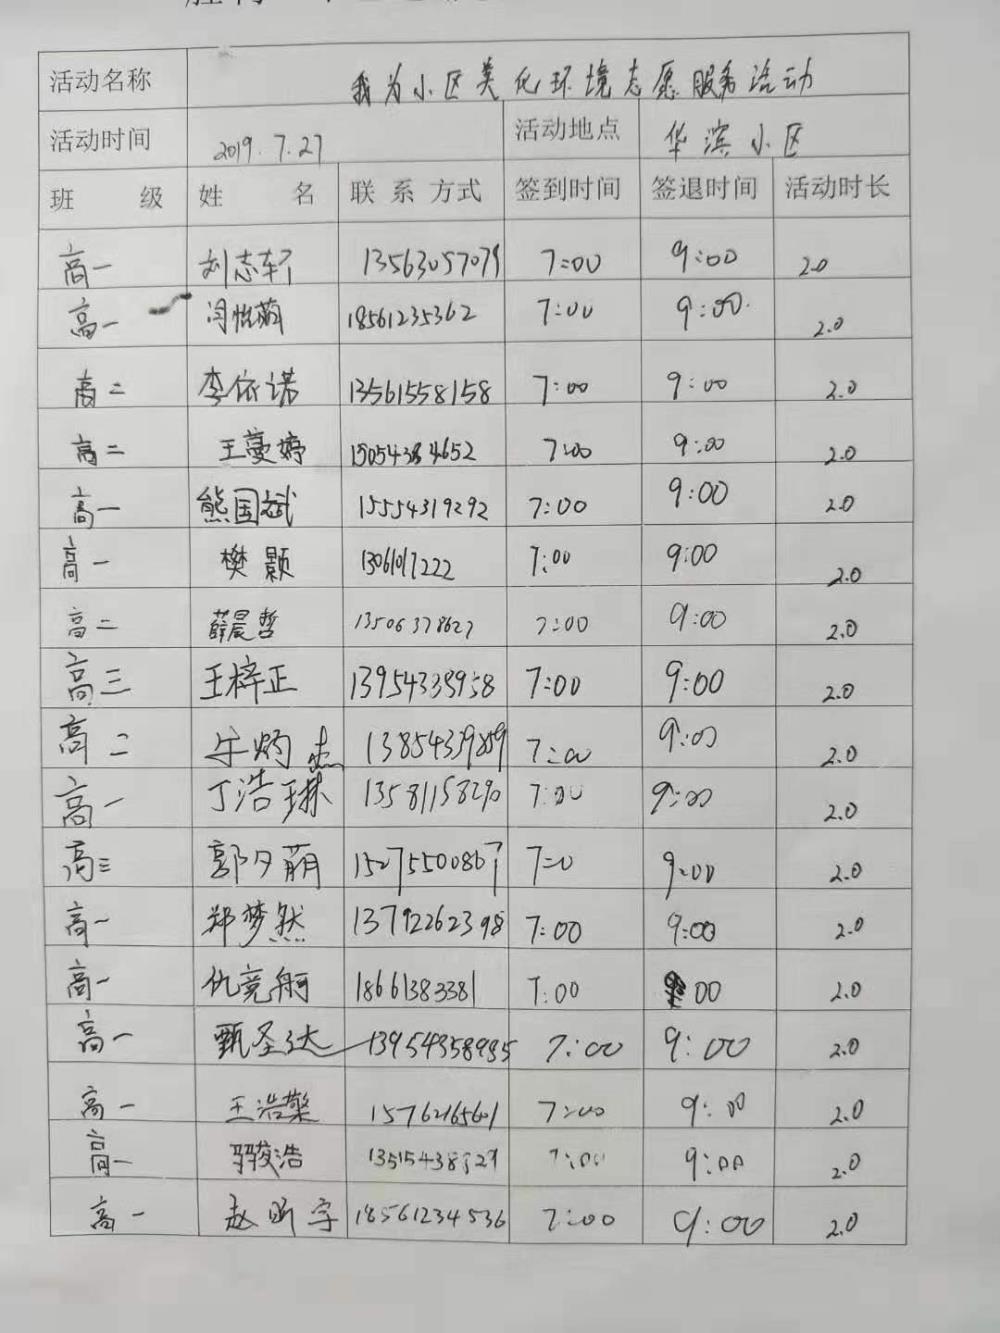 活动名称 我为小区美化环境志愿服务活动
活动时间 2019.7.27 活动地点 华滨小区
班 级 姓 名 联系方式 签到时间 签退时间 活动时长
高一 刘志轩 13563057079 7:00 9:00 2.0
高一 闫悦萌 18561235362 7:00 9:00 2.0
高二 李依诺 13561558158 7:00 9:00 2.0
高二 王蔓婷 15054384652 7:00 9:00 2.0
高一 熊国斌 15554319292 7:00 9:00 2.0
高一 樊颢 13061017222 7:00 9:00 2.0
高二 薛晨哲 13506378627 7:00 9:00 2.0
高三 王梓正 13954338958 7:00 9:00 2.0
高二 牛灼杰 13854339859 7:00 9:00 2.0
高一 丁浩琳 13581158290 7:00 9:00 2.0
高三 郭夕萌 15275500867 7:0 9:00 2.0
高一 郑梦然 13792262398 7:00 9:00 2.0
高一 仇竞舸 18661383381 7:00 00 2.0
高一 甄圣达 13954358985 7:00 9:00 2.0
高一 王浩檠 15762165601 7:00 9:00 2.0
高一 骏浩 7:00 9:00 2.0
高一 赵昕宇 18561234536 7:00 9:00 2.0